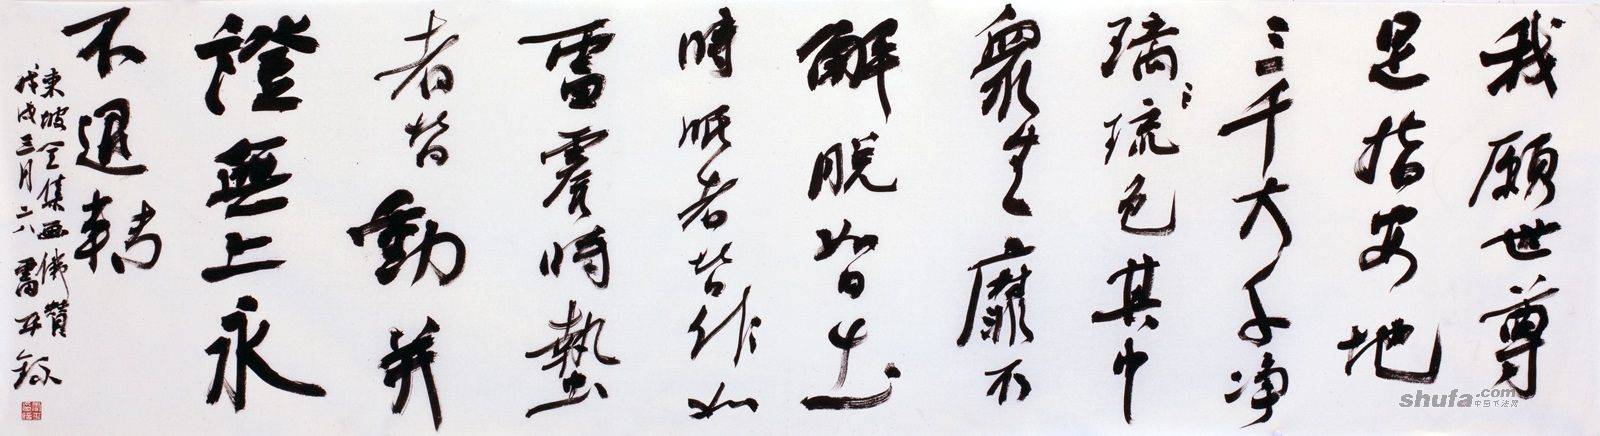 我願世尊
足指安地
三千大千淨
璃琉色其中
衆生靡不
解脫如日出
時眠者皆作如
雷震時蟄
者皆動并
證無上永
不退轉
東坡全集画佛贊
戊戌三月二八
shufa.com